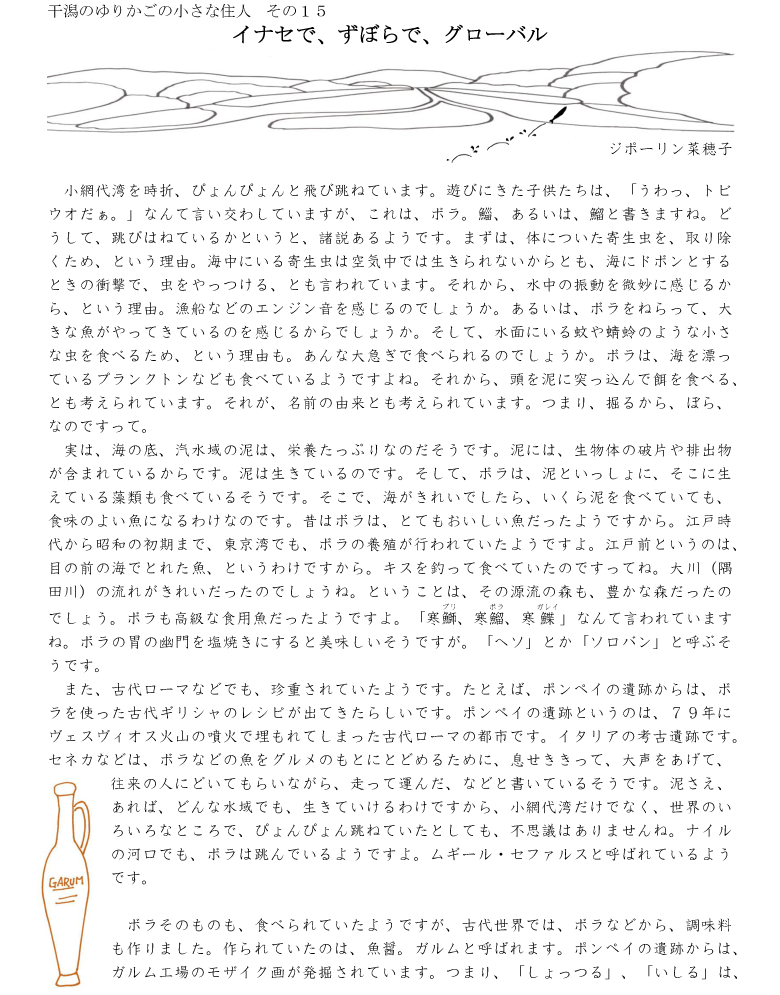 干潟のゆりかごの小さな住人　その１５
イナセで、ずぼらで、グローバル
ジポーリン菜穂子
小網代湾を時折、ぴょんぴょんと飛び跳ねています。遊びにきた子供たちは、「うわっ、トビ
ウオだぁ。」なんて言い交わしていますが、これは、ボラ。鯔、あるいは、鰡と書きますね。ど
うして、跳びはねているかというと、諸説あるようです。まずは、体についた寄生虫を、取り除
くため、という理由。海中にいる寄生虫は空気中では生きられないからとも、海にドボンとする
ときの衝撃で、虫をやっつける、とも言われています。それから、水中の振動を微妙に感じるか
ら、という理由。漁船などのエンジン音を感じるのでしょうか。あるいは、ボラをねらって、大
きな魚がやってきているのを感じるからでしょうか。そして、水面にいる蚊や蜻蛉のような小さ
な虫を食べるため、という理由も。あんな大急ぎで食べられるのでしょうか。ボラは、海を漂っ
ているプランクトンなども食べているようですよね。それから、頭を泥に突っ込んで餌を食べる、
とも考えられています。それが、名前の由来とも考えられています。つまり、掘るから、ぼら、
なのですって。
実は、海の底、汽水域の泥は、栄養たっぷりなのだそうです。泥には、生物体の破片や排出物
が含まれているからです。泥は生きているのです。そして、ボラは、泥といっしょに、そこに生
えている藻類も食べているそうです。そこで、海がきれいでしたら、いくら泥を食べていても、
食味のよい魚になるわけなのです。昔はボラは、とてもおいしい魚だったようですから。江戸時
代から昭和の初期まで、東京湾でも、ボラの養殖が行われていたようですよ。江戸前というのは、
目の前の海でとれた魚、というわけですから。キスを釣って食べていたのですってね。大川（隅
田川）の流れがきれいだったのでしょうね。ということは、その源流の森も、豊かな森だったの
でしょう。ボラも高級な食用魚だったようですよ。「寒鰤、寒鰡、寒鰈」なんて言われています
ね。ボラの胃の幽門を塩焼きにすると美味しいそうですが。「ヘソ」とか「ソロバン」と呼ぶそ
うです。
また、古代ローマなどでも、珍重されていたようです。たとえば、ポンペイの遺跡からは、ボ
ラを使った古代ギリシャのレシピが出てきたらしいです。ポンペイの遺跡というのは、７９年に
ヴェスヴィオス火山の噴火で埋もれてしまった古代ローマの都市です。イタリアの考古遺跡です。
セネカなどは、ボラなどの魚をグルメのもとにとどめるために、息せききって、大声をあげて、
往来の人にどいてもらいながら、走って運んだ、などと書いているそうです。泥さえ、
あれば、どんな水域でも、生きていけるわけですから、小網代湾だけでなく、世界のい
ろいろなところで、ぴょんぴょん跳ねていたとしても、不思議はありませんね。ナイル
の河口でも、ボラは跳んでいるようですよ。ムギール・セファルスと呼ばれているよう
です。
GARUM
ボラそのものも、食べられていたようですが、古代世界では、ボラなどから、調味料
も作りました。作られていたのは、魚醤。ガルムと呼ばれます。ポンペイの遺跡からは、
ガルム工場のモザイク画が発掘されています。つまり、「しょっつる」、「いしる」は、